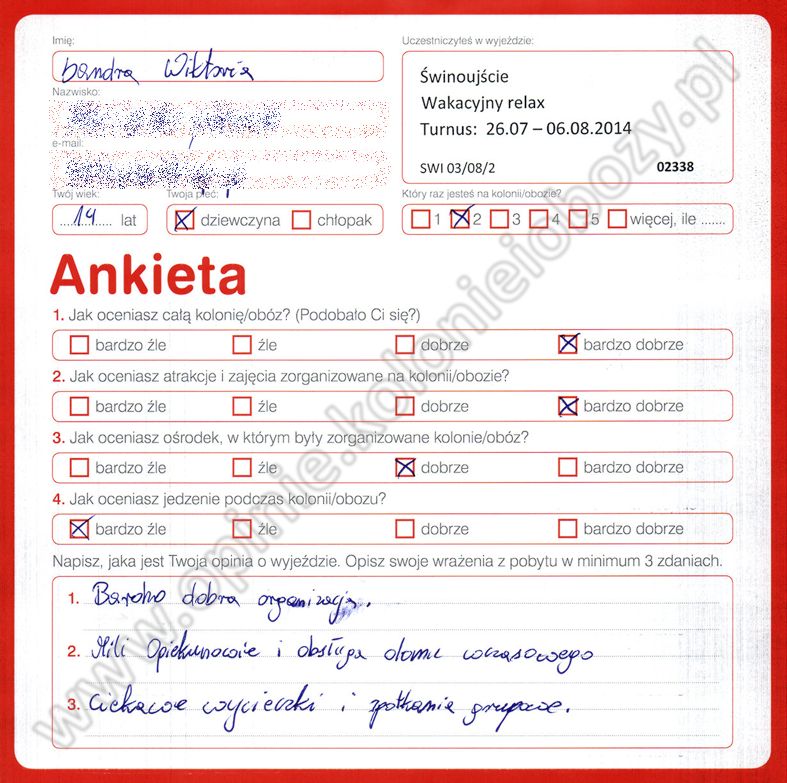 Imię:
Uczestniczyłeś w wyjeździe:
Sandra Wiktoria
Świnoujście
Wakacyjny relax
Turnus: 26.07 – 06.08.2014
SWI 03/08/2 02338
Nazwisko:
e-mail:
Twój wiek:
Twoja płeć:
Który raz jesteś na kolonii/obozie?
14 lat
dziewczyna chłopak
1 2 3 4 5 więcej, ile .......
Ankieta
1. Jak oceniasz całą kolonię/obóz? (Podobało Ci się?)
bardzo źle źle dobrze bardzo dobrze
2. Jak oceniasz atrakcje i zajęcia zorganizowane na kolonii/obozie?
bardzo źle źle dobrze bardzo dobrze
3. Jak oceniasz ośrodek, w którym były zorganizowane kolonie/obóz?
bardzo źle źle dobrze bardzo dobrze
4. Jak oceniasz jedzenie podczas kolonii/obozu?
bardzo źle źle dobrze bardzo dobrze
Napisz, jaka jest Twoja opinia o wyjeździe. Opisz swoje wrażenia z pobytu w minimum 3 zdaniach.
1. Bardzo dobra organizacja.
2. Mili Opiekunowie i obsługa domu wczasowego
3. Ciekawe wycieczki i spotkania grupowe.
www.opinie.kolonieiobozy.pl